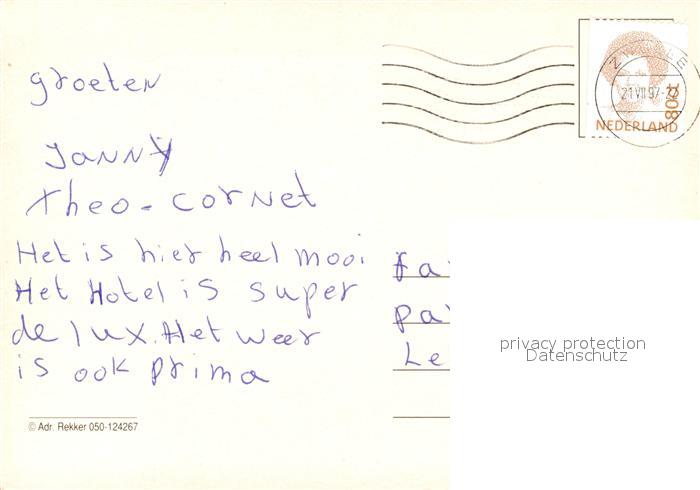 groeten
Janny
Theo - Cornet
Het is hier heel mooi
Het Hotel is super
de lux. Het weer
is ook prima
© Adr. Rekker 050-124267
21 VII 97-22
80c
NEDERLAND
fa
pa
Le
privacy protection
Datenschutz